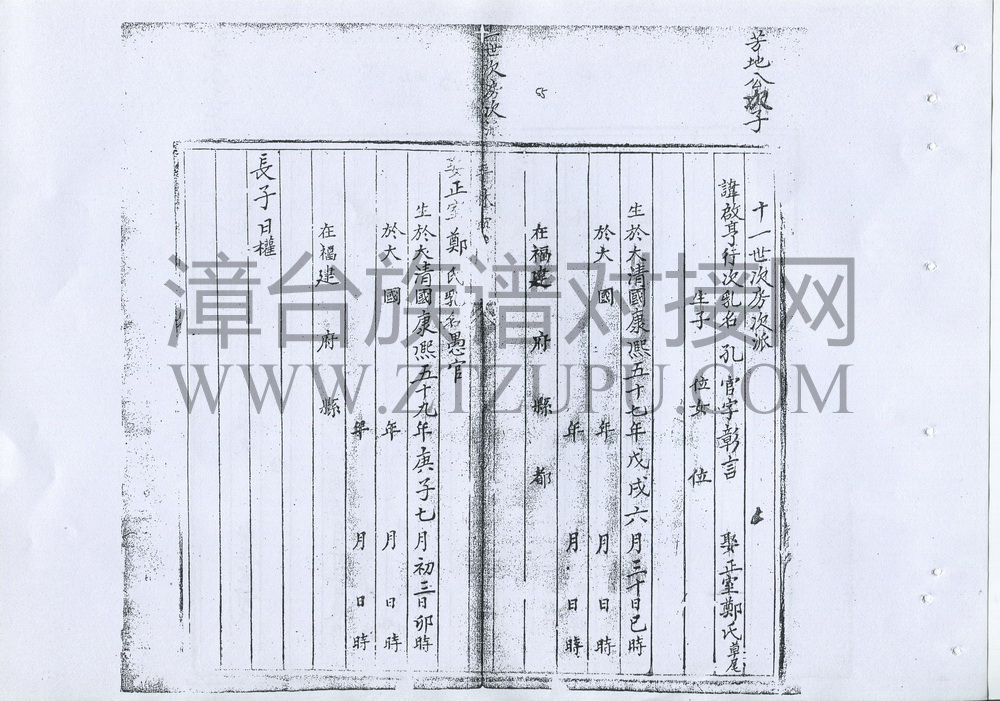 芳地公次子
十一世次房次派
諱啟亨行次乳名孔官字彰言 娶正室鄭氏草尾
生子 位女 位
生於大清國康熙五十七年戊戌六月三十日巳時
於大 國 年 月 日 時
年 月 日 時
在福建 府 縣 都
世次房次
55
妣正室鄭氏乳名愚官
生於大清國康熙五十九年庚子七月初三日卯時
於大 國 年 月 日 時
年 月 日 時
在福建 府 縣
長子日權
漳台族谱对接网
WWW.ZTZUPU.COM